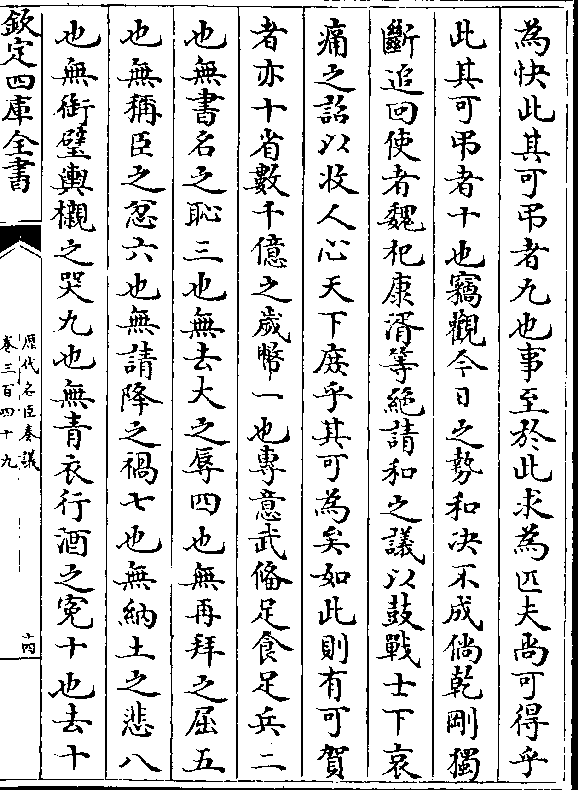 為快此其可弔者九也事至於此求為匹夫尚可得乎
此其可弔者十也竊觀今日之勢和決不成倘乾剛獨
斷追回使者魏杞康湑等絶請和之議以鼓戰士下哀
痛之詔以收人心天下庶乎其可為矣如此則有可賀
者亦十省數千億之歲幣一也專意武備足食足兵二
也無書名之恥三也無去大之辱四也無再拜之屈五
也無稱臣之忿六也無請降之禍七也無納土之悲八
也無銜璧輿櫬之哭九也無青衣行酒之寃十也去十
欽定四庫全書
歴代名臣奏議
卷三百四十九
十四